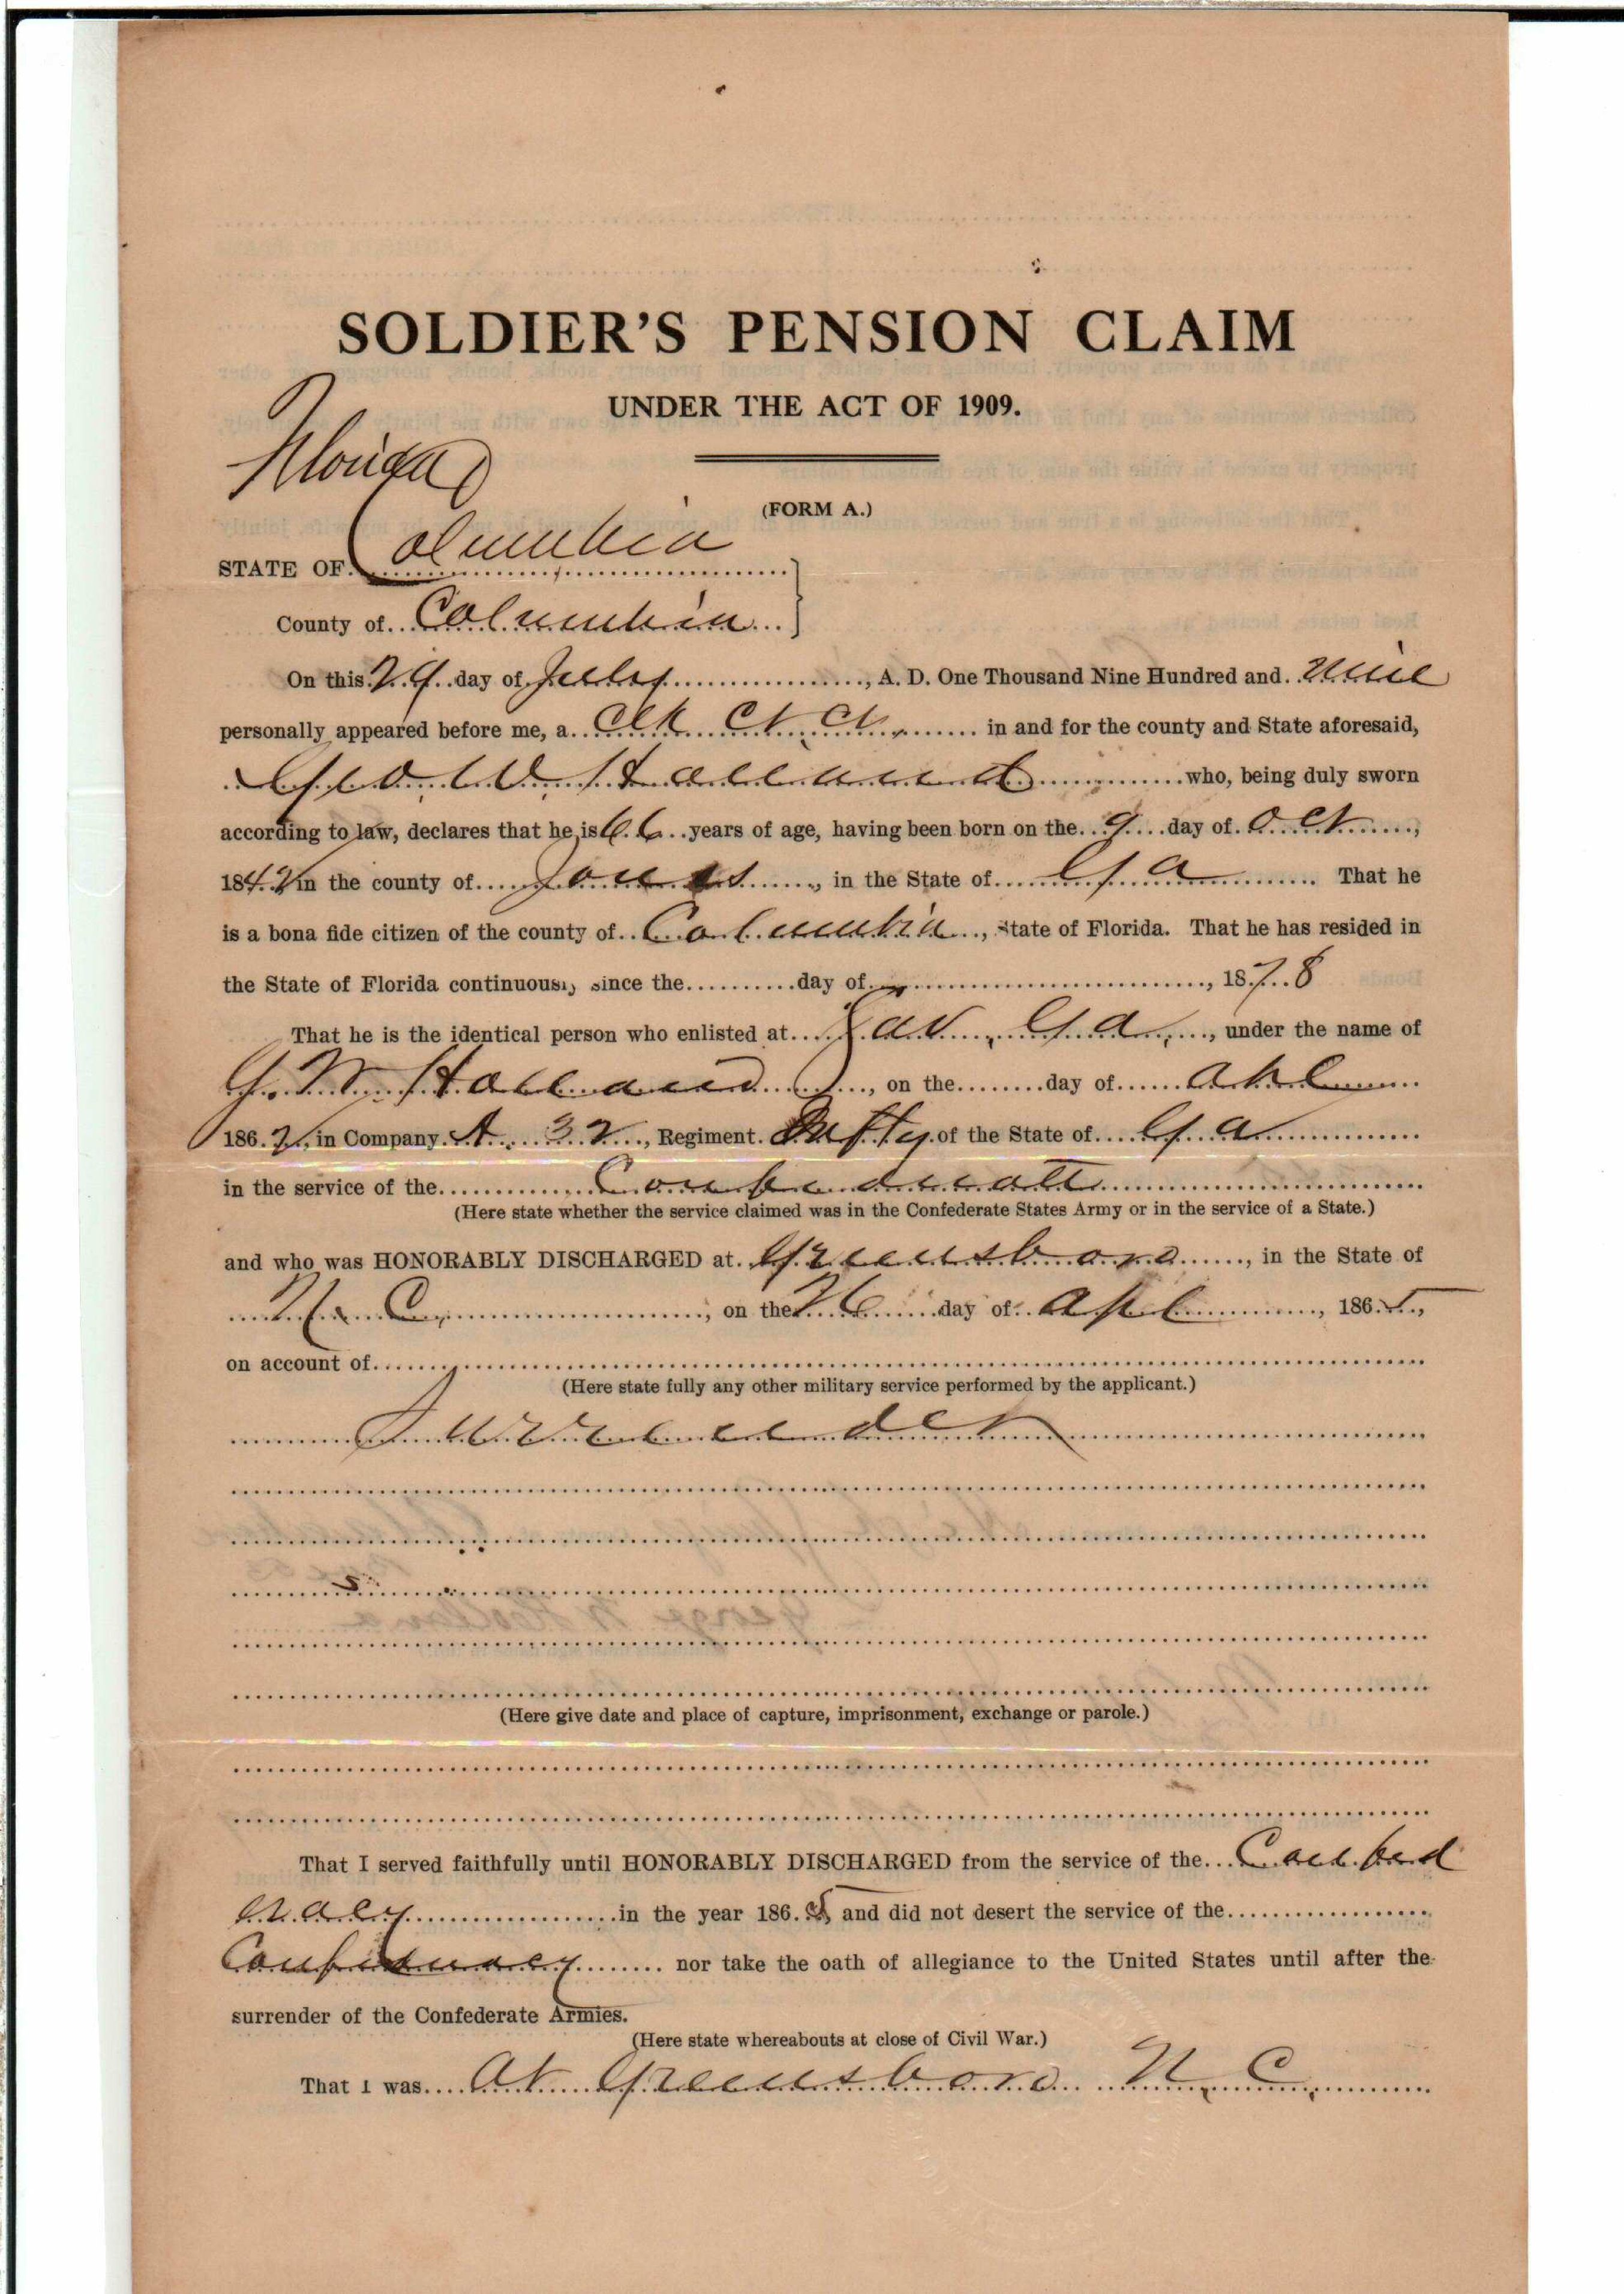 SOLDIER'S PENSION CLAIM
UNDER THE ACT OF 1909.
Florida
(FORM A.)
STATE OF Columbia
County of Columbia
On this 29 day of July, A. D. One Thousand Nine Hundred and Nine
personally appeared before me, a Clk Ct Ct in and for the county and State aforesaid,
Geo W Holland who, being duly sworn
according to law, declares that he is 66 years of age, having been born on the 9 day of Oct,
1842 in the county of Jones, in the State of Ga That he
is a bona fide citizen of the county of Columbia, State of Florida. That he has resided in
the State of Florida continuously since the day of, 1878
That he is the identical person who enlisted at Sav, Ga, under the name of
G. W. Holland, on the day of Apl
1862, in Company A 32, Regiment Infty of the State of Ga
in the service of the Confederate
(Here state whether the service claimed was in the Confederate States Army or in the service of a State.)
and who was HONORABLY DISCHARGED at Greensboro, in the State of
N. C., on the 26 day of Apl, 1865,
on account of
(Here state fully any other military service performed by the applicant.)
Surrender
(Here give date and place of capture, imprisonment, exchange or parole.)
That I served faithfully until HONORABLY DISCHARGED from the service of the Confed
eracy in the year 1865, and did not desert the service of the
Confederacy nor take the oath of allegiance to the United States until after the
surrender of the Confederate Armies.
(Here state whereabouts at close of Civil War.)
That I was At Greensboro N. C.